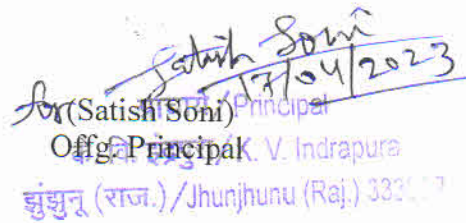 Satish Soni
17/04/2023
for (Satish Soni)
/Principal
Offg. Principal
/K. V. Indrapura
झुंझुनू (राज.)/Jhunjhunu (Raj.)